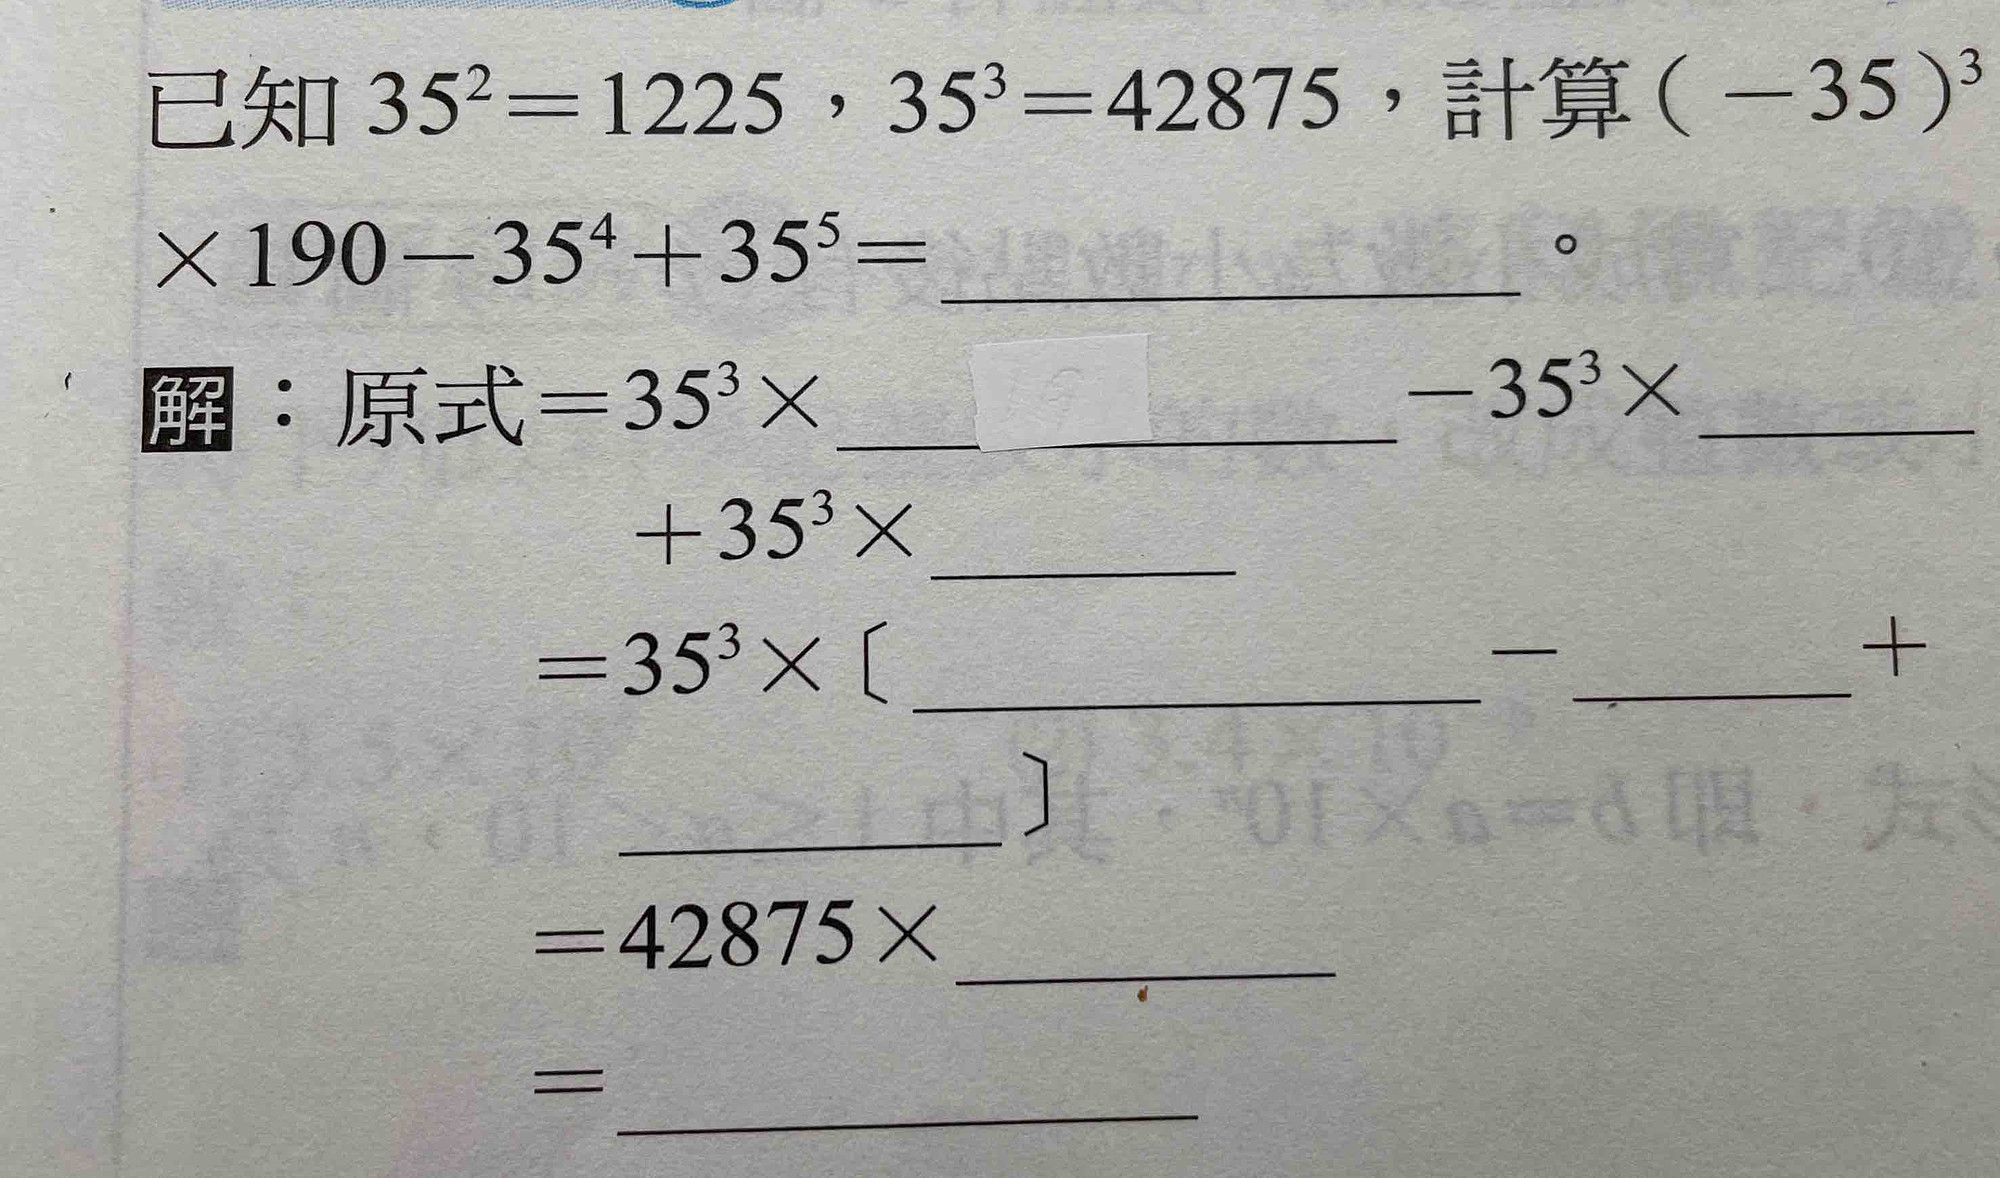 已知 35²=1225,35³=42875,計算(-35)³
×190-35⁴+35⁵=________。
解:原式=35³×________-35³×________
+35³×________
=35³×〔________-________+
________〕
=42875×________
=________